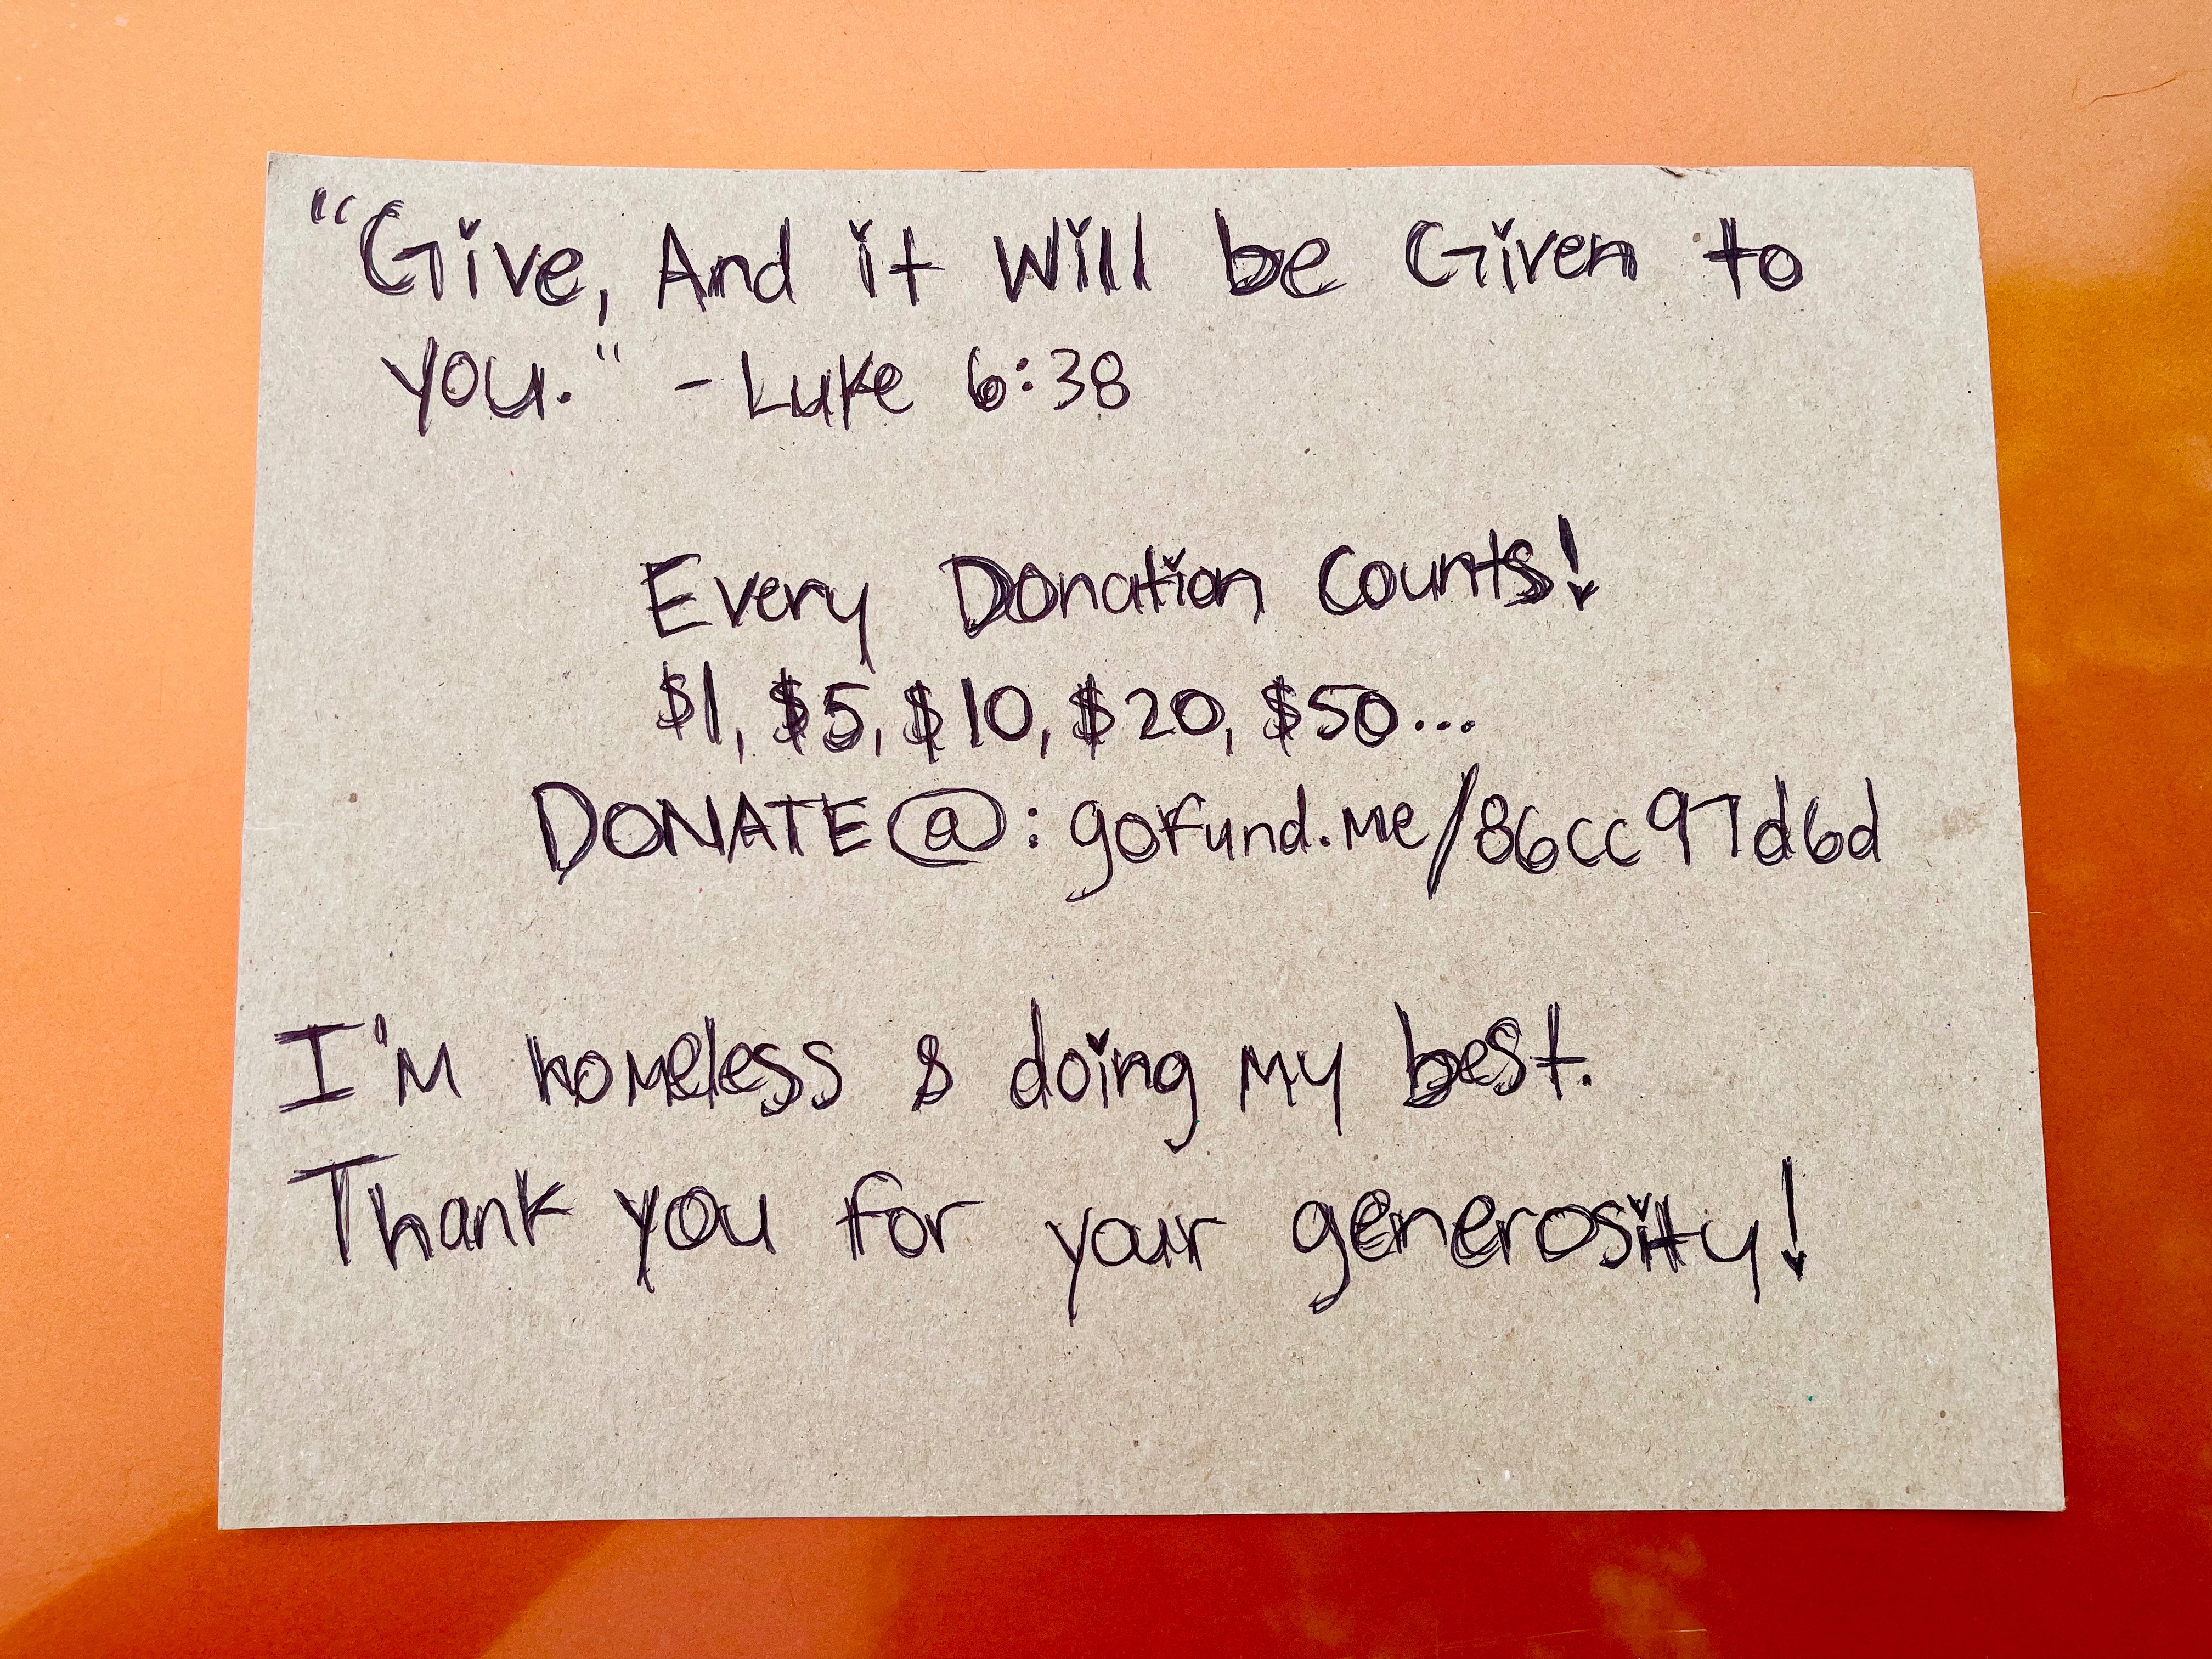 "Give, And it Will be Given to
you." - Luke 6:38
Every Donation Counts!
$1, $5, $10, $20, $50...
DONATE@: gofund.me/86cc97d6d
I'm homeless & doing my best.
Thank you for your generosity!